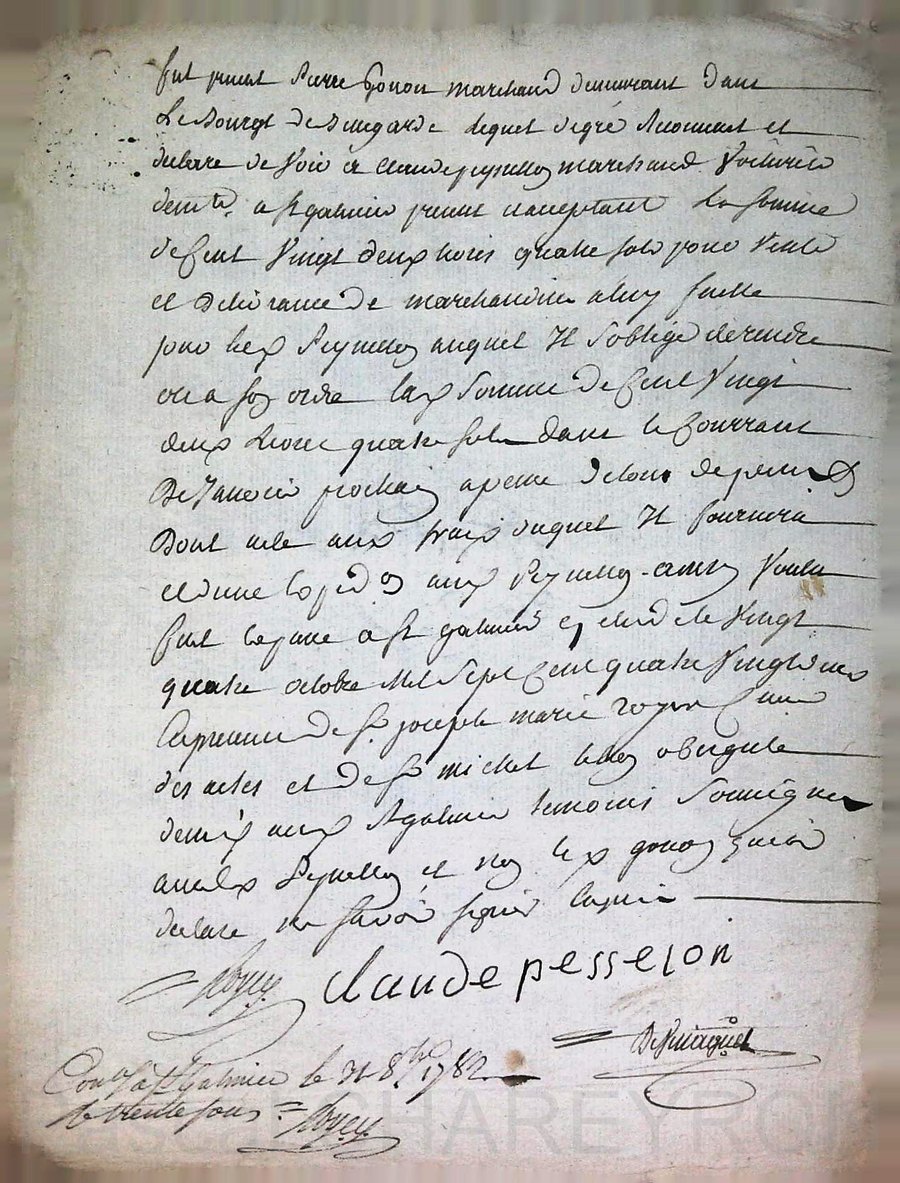 fut present Pierre Gonon marchand demeurant dans
Le Bourgt de Bellegarde lequel de gré a reconnut et
declare devoir a Claude peysselon marchand Voiturié
demt. a st galmier present et acceptant la somme
de Cent Vingt deux livres quatre sols pour Vente
et Delivrance de marchandise a luy faitte
par led. Peysselon auquel Il s'oblige de rendre
ou a son ordre lad. Somme de Cent Vingt
deux Livres quatre sols dans le Courrant
De Janvier prochain a peine de tous depens
Dont acte aux fraix duquel Il fournira
et d'une Expedon aud. Peysselon ainsy Voulu
fait et passé a st galmier en etude le Vingt
quatre octobre Mil Sept Cent quatre Vingt deux
En presence de sr. joseph marie royer
des actes et de sr michel
demts aud. st galmier temoins Soussignés
avec led. Peysselon et non led. gonon qui a
declaré ne savoir signer
Royer Claude pesselon
Conlé. a St Galmier le 31 8bre 1782
R trente sous Royer
CHAREYRON